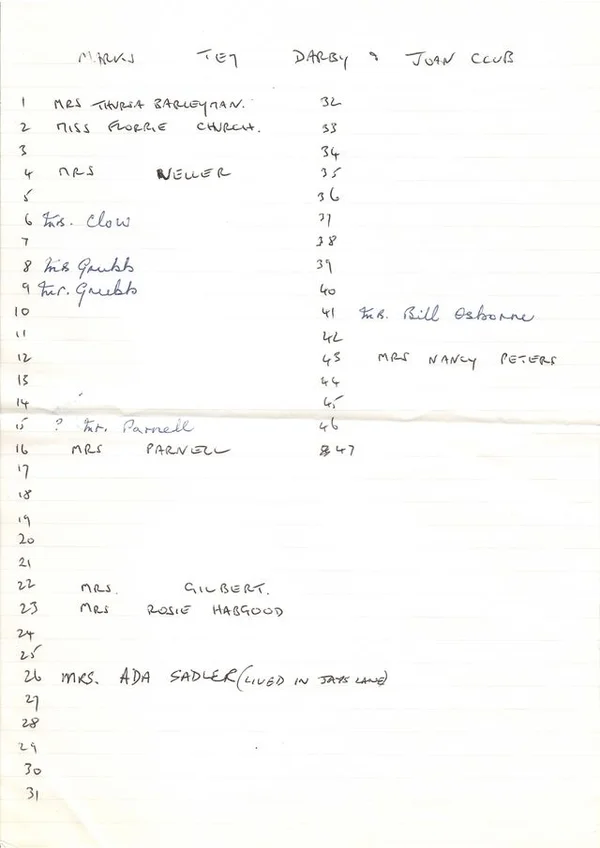 MARKS TEY DARBY & JOAN CLUB
1 MRS THURZA BARLEYMAN.
2 MISS FLORRIE CHURCH.
3
4 MRS WELLER
5
6 Mrs. Clow
7
8 Mrs Grubb
9 Mr. Grubb
10
11
12
13
14
15 ? Mr. Parnell
16 MRS PARNELL
17
18
19
20
21
22 MRS. GILBERT.
23 MRS ROSIE HABGOOD
24
25
26 MRS. ADA SADLER (LIVED IN JAYS LANE)
27
28
29
30
31
32
33
34
35
36
37
38
39
40
41 Mr. Bill Osborne
42
43 MRS NANCY PETERS
44
45
46
47